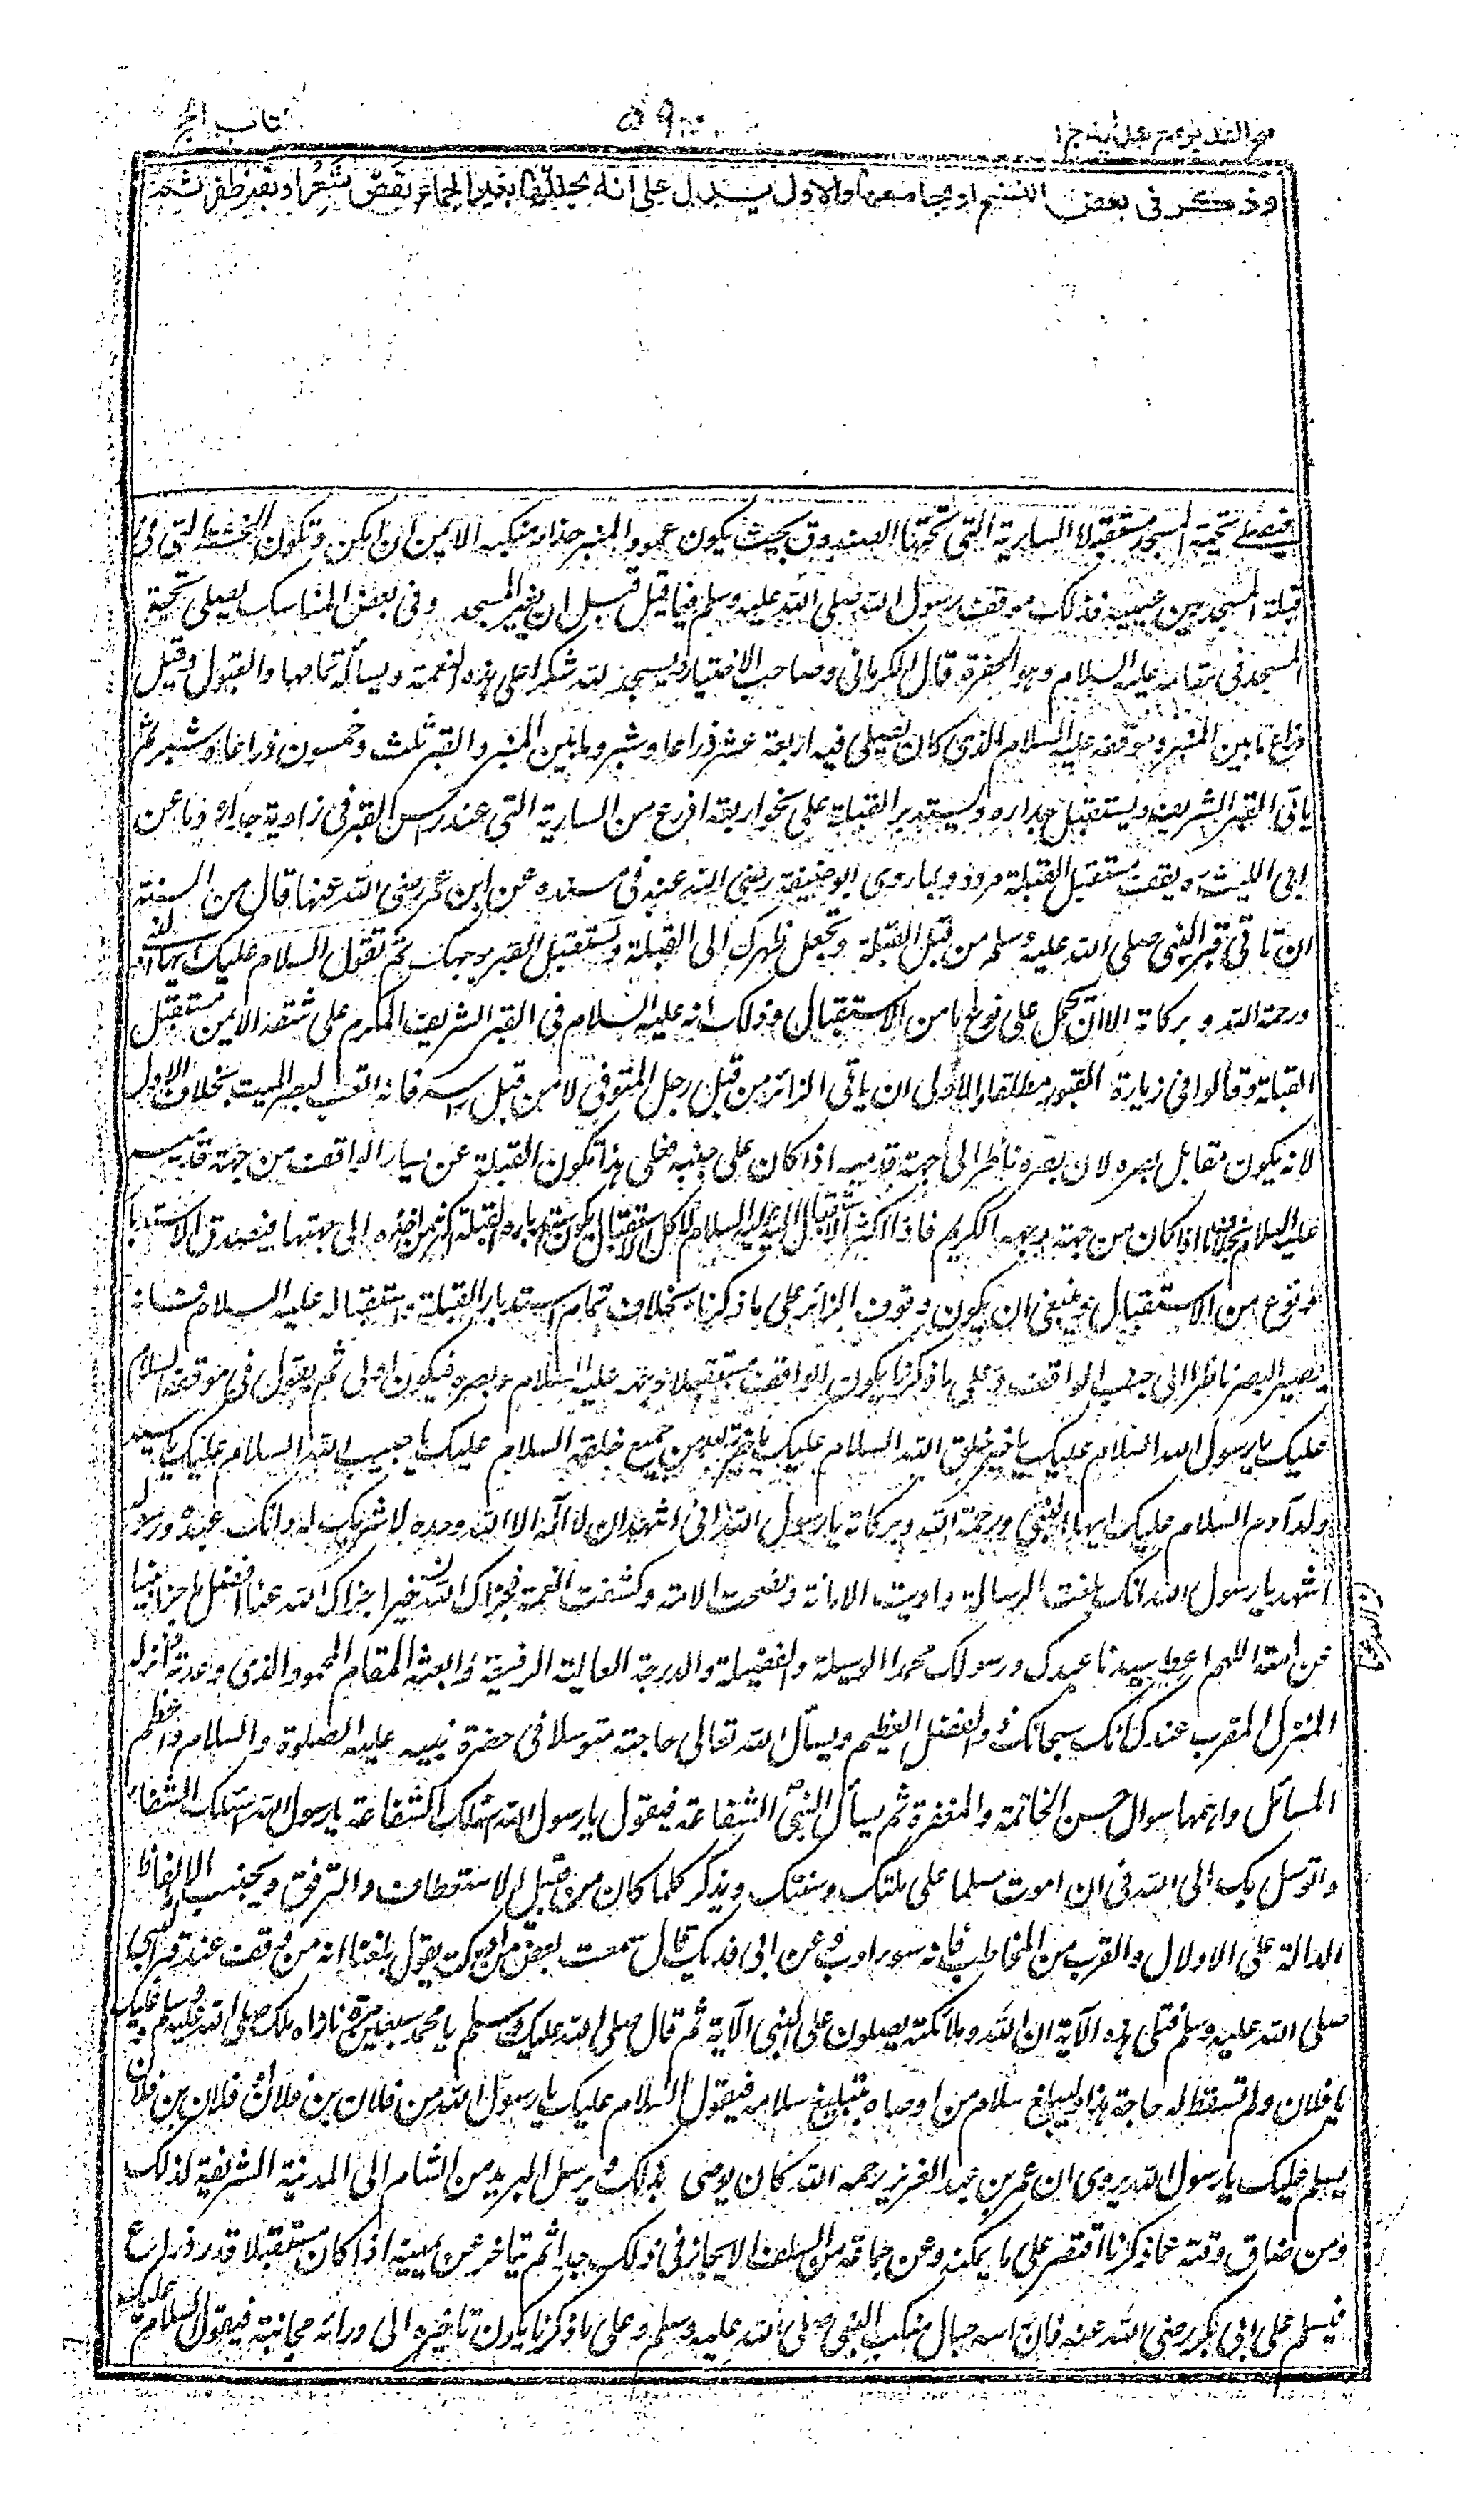 فتح القدير مع هداية ج ١
٥٩٠
كتاب الحج
وذكر فى بعض النسخ او يجامعها والاول يدل على انه يحللها بغير الجماع بقص شعر او بقص ظفر ثم
فيصلے تحية المسجد مستقبلا السارية التى تحتها الصندوق بحيث يكون عمود المنبر حذاء منكبه الايمن ان امكن وتكون الخشبة التى فى
قبلة المسجد بين عينيه فذلك موقف رسول الله صلى الله عليه وسلم فيما قيل قبل ان يغير المسجد وفى بعض المناسك يصلى تحية
المسجد فى مقامه عليه السلام وهو الحفرة قال الكرمانى وصاحب الاختيار ويسجد لله شكرا على هذه النعمة ويسأله تمامها والقبول وقيل
ذراع ما بين المنبر وموقفه عليه السلام الذى كان يصلى فيه اربعة عشر ذراعا وشبر وما بين المنبر والقبر ثلث وخمسون ذراعا وشبر ثم
ياتى القبر الشريف ويستقبل جداره ويستدبر القبلة على نحو اربعة اذرع من السارية التى عند راس القبر فى زاوية جداره وما عن
ابى الليث ويقف مستقبل القبلة مردود بما روى ابو حنيفة رضى الله عنه فى مسنده عن ابن عمر رضى الله عنهما قال من السنة
ان تاتى قبر النبى صلى الله عليه وسلم من قبل القبلة وتجعل ظهرك الى القبلة وتستقبل القبر بوجهك ثم تقول السلام عليك ايها النبى
ورحمة الله وبركاته الا ان يحمل على نوع ما من الاستقبال وذلك انه عليه السلام فى القبر الشريف المكرم على شقه الايمن مستقبل
القبلة وقالوا فى زيارة القبور مطلقا الاولى ان ياتى الزائر من قبل رجل المتوفى لا من قبل راسه فانه اتعب لبصر الميت بخلاف الاول
لانه يكون مقابل بصره لان بصره ناظر الى جهة قدميه اذا كان على جنبه فعلى هذا تكون القبلة عن يسار الواقف من جهة قدميه
عليه السلام بخلاف ما اذا كان من جهة وجهه الكريم فاذا اكثر الاستقبال اليه عليه السلام لا كل الاستقبال يكون استدباره القبلة اكثر من اخذه الى جهتها فيصدق الاستدبار
ونوع من الاستقبال وينبغى ان يكون وقوف الزائر على ما ذكرنا بخلاف تمام استدبار القبلة واستقباله عليه السلام فانه
يصير البصر ناظرا الى جنب الواقف وعلى ما ذكرنا يكون الواقف مستقبلا وجهه عليه السلام وبصره فيكون اولى ثم يقول فى موقفه السلام
عليك يا رسول الله السلام عليك يا خير خلق الله السلام عليك يا خيرة الله من جميع خلقه السلام عليك يا حبيب الله السلام عليك يا سيد
ولد آدم السلام عليك ايها النبى ورحمة الله وبركاته يا رسول الله انى اشهد ان لا اله الا الله وحده لا شريك له وانك عبده ورسوله
اشهد يا رسول الله انك بلغت الرسالة واديت الامانة ونصحت الامة وكشفت الغمة فجزاك الله خيرا جزاك الله عنا افضل ما جزا نبيا
عن امته اللهم اعط سيدنا عبدك ورسولك محمدا الوسيلة والفضيلة والدرجة العالية الرفيعة وابعثه المقام المحمود الذى وعدته وانزله
المنزل المقرب عندك انك سبحانك ذو الفضل العظيم ويسأل الله تعالى حاجته متوسلا فى حضرة نبيه عليه الصلوة والسلام واعظم
المسائل واهمها سوال حسن الخاتمة والمغفرة ثم يسأل النبى الشفاعة فيقول يا رسول الله اسئلك الشفاعة يا رسول الله اسئلك الشفاعة
واتوسل بك الى الله فى ان اموت مسلما على ملتك وسنتك ويذكر كلما كان من قبيل الاستعطاف والترفق ويجتنب الالفاظ
الدالة على الادلال والقرب من المخاطب فانه سوء ادب وعن ابى فديك قال سمعت بعض من ادركت يقول بلغنا انه من وقف عند قبر النبى
صلى الله عليه وسلم فتلى هذه الآية ان الله وملائكته يصلون على النبى الآية ثم قال صلى الله عليك وسلم يا محمد سبعين مرة ناداه ملك صلى الله عليك وسلم
يا فلان ولم تسقط له حاجة هذا وليبلغ سلام من اوصاه بتبليغ سلامه فيقول السلام عليك يا رسول الله من فلان بن فلان او فلان بن فلان
يسلم عليك يا رسول الله يروى ان عمر بن عبد العزيز رحمه الله كان يوصى بذلك ويرسل البريد من الشام الى المدينة الشريفة لذلك
ومن ضاق وقته عما ذكرنا اقتصر على ما يمكنه وعن جماعة من السلف الايجاز فى ذلك جدا ثم يتاخر عن يمينه اذا كان مستقبلا قدر ذراع
فيسلم على ابى بكر رضى الله عنه فان راسه حيال منكب النبى صلى الله عليه وسلم وعلى ما ذكرنا يكون تاخره الى ورائه بجانبه فيقول السلام عليك